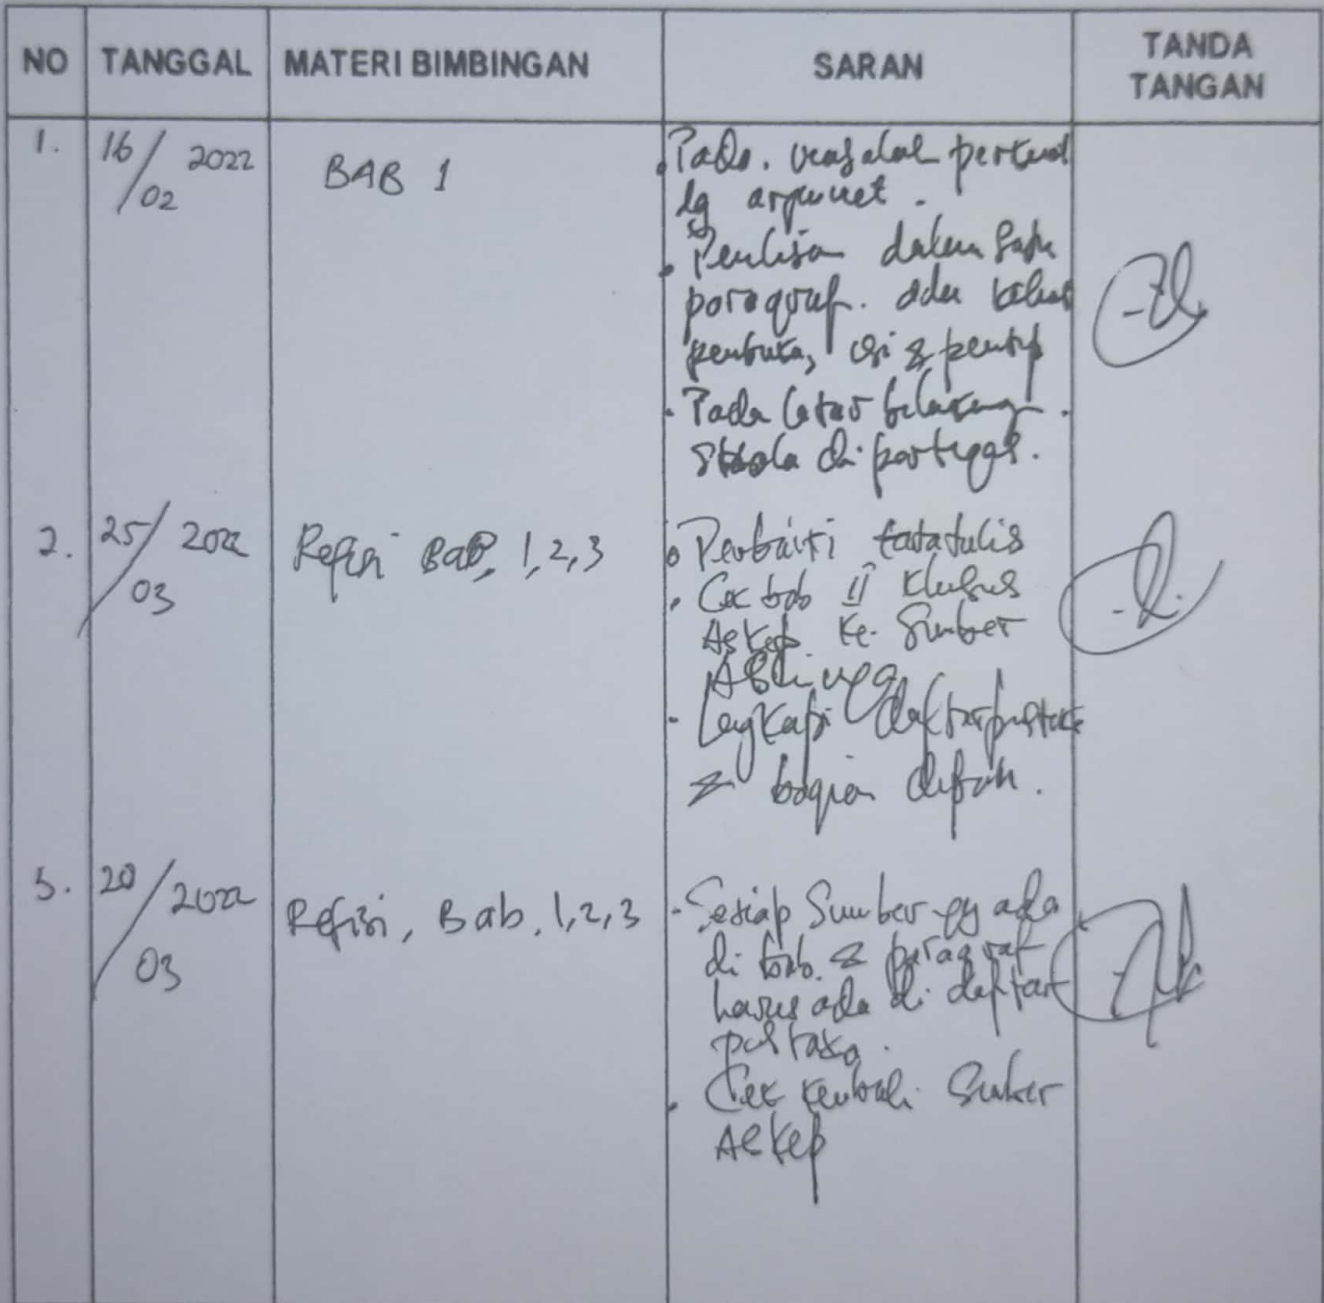 NO TANGGAL MATERI BIMBINGAN SARAN TANDA TANGAN
1. 16/02 2022 BAB 1
Pada masalah
dg argumet.
Penulisan dalam satu
paragraf. ada
pembuka, isi & penutup
Pada latar belakang.
di pertegas.
2. 25/03 2022 Refisi Bab, 1,2,3
Perbaiki tatatulis
Cek bab II Khusus
Askep Ke. Sumber
Aslinya
Lengkapi daftar pustaka
& bagian
3. 20/03 2022 Refisi, Bab, 1,2,3
Setiap Sumber yg ada
di bab. & paragraf
harus ada di daftar
pustaka.
Cek kembali Sumber
Askep